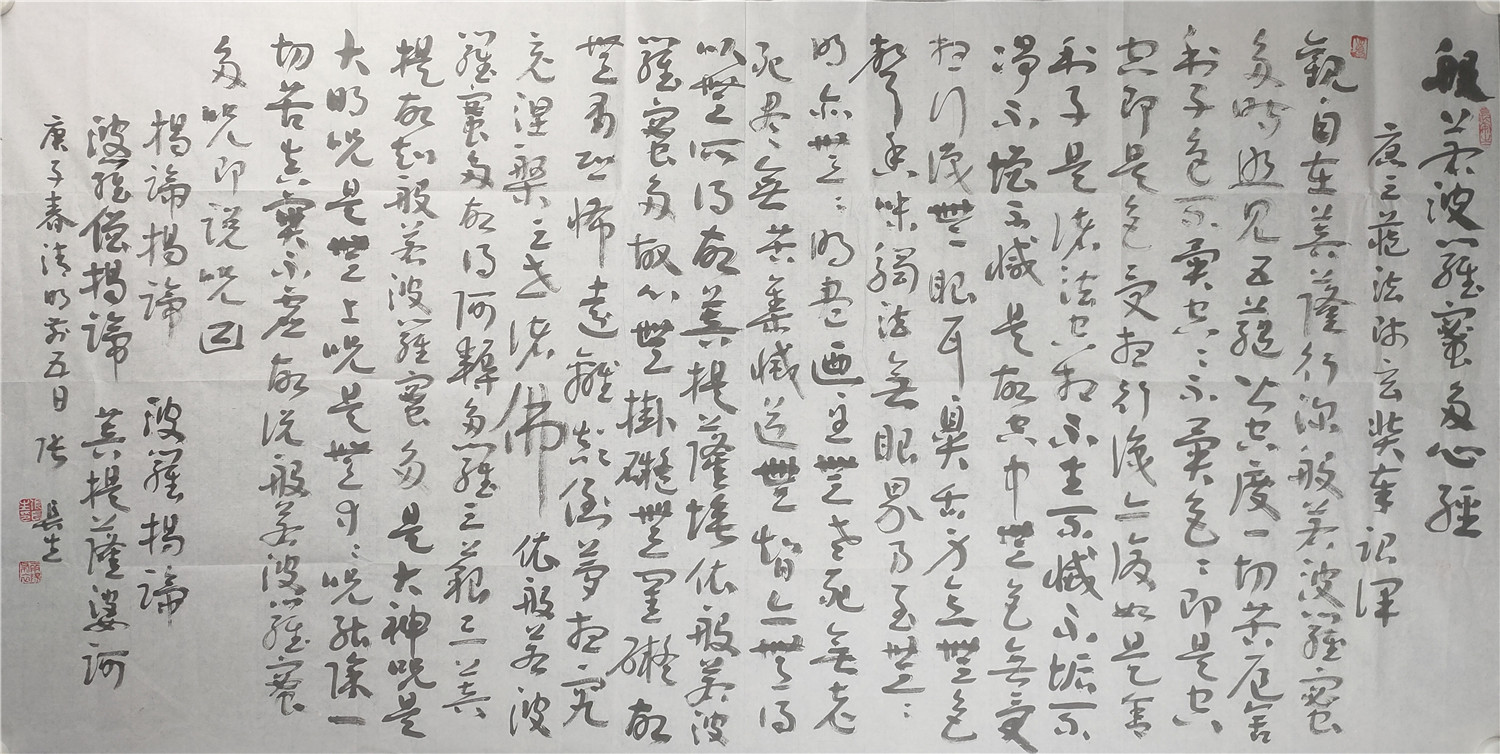 般若波羅蜜多心經
唐三藏法師玄奘奉詔譯
觀自在菩薩行深般若波羅蜜
多時照見五蘊皆空度一切苦厄舍
利子色不異空〻不異色〻即是空
空即是色受想行識亦復如是舍
利子是諸法空相不生不滅不垢不
淨不增不減是故空中無色無受
想行識無眼耳鼻舌身意無色
聲香味觸法無眼界乃至無〻
明亦無〻明盡迺至無老死無老
死盡〻無苦集滅道無智亦無得
以無所得故菩提薩埵依般若波
羅蜜多故心無掛礙無罣礙故
無有恐怖遠離顛倒夢想究
竟涅槃三世諸佛依般若波
羅蜜多故得阿耨多羅三藐三菩
提故知般若波羅蜜多是大神咒是
大明咒是無上咒是無等〻咒能除一
切苦真實不虛故說般若波羅蜜
多咒即說咒曰
揭諦揭諦 波羅揭諦
波羅僧揭諦 菩提薩婆訶
庚子春清明前五日 張